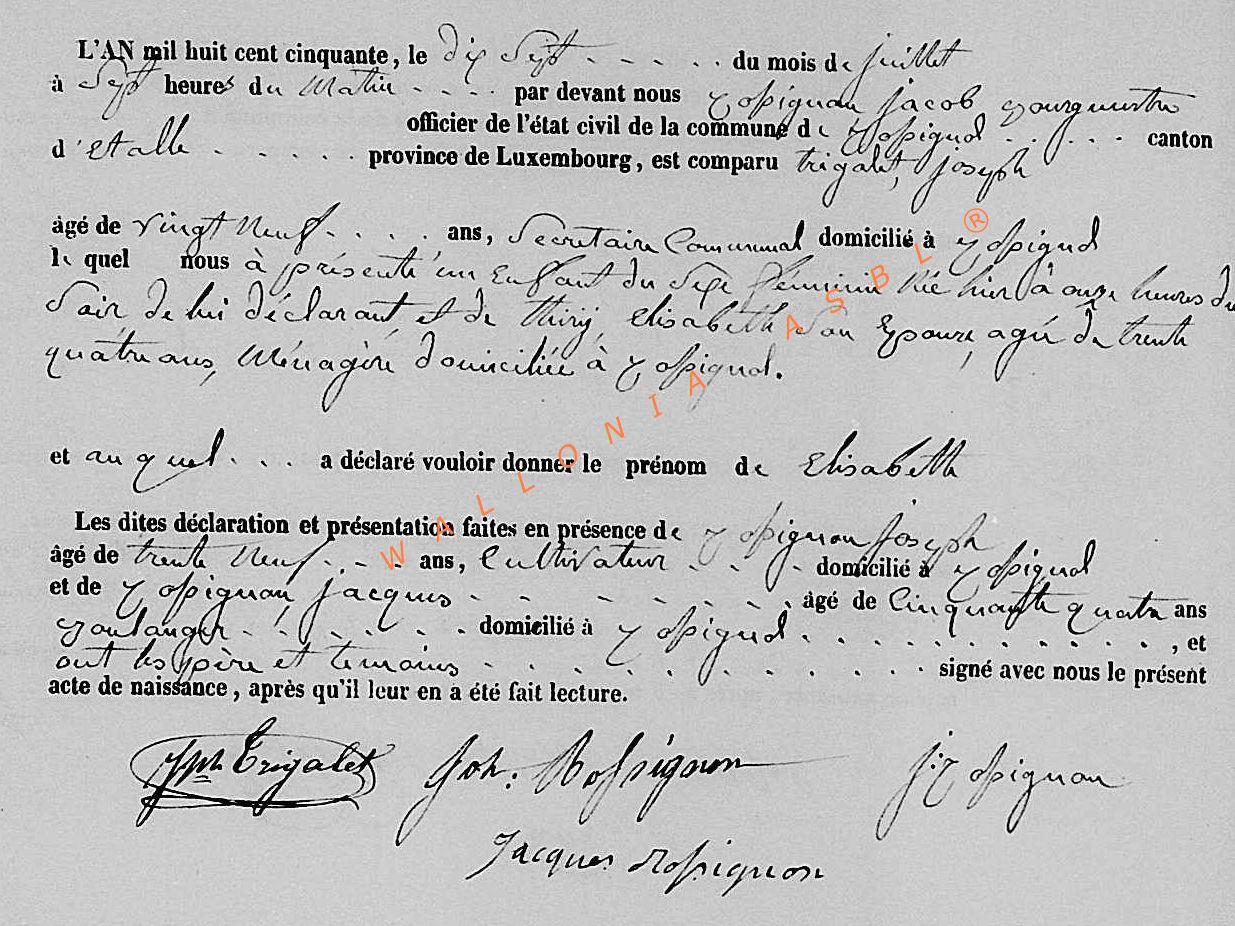 L'AN mil huit cent cinquante, le dix Sept - - - - - du mois de juillet
à Sept heures du Matin - - - - par devant nous Rossignon jacob Bourgmestre
officier de l'état civil de la commune de Rossignol - - - - - canton
d'Etalle - - - - - province de Luxembourg, est comparu trigalet, joseph
âgé de vingt Neuf - - - - ans, Secretaire Communal domicilié à Rossignol
le quel nous à présenté un Enfant du Sexe féminin Né hier à onze heures du
Soir de lui déclarant, et de thiry, Elisabeth Son Epouse, agée de trente
quatre ans, Ménagère domiciliée à Rossignol.
et au quel - - - a déclaré vouloir donner le prénom de Elisabeth
Les dites déclaration et présentation faites en présence de Rossignon joseph
âgé de trente Neuf - - - ans, Cultivateur - - - domicilié à Rossignol
et de Rossignon, jacques - - - - - - - - âgé de Cinquante quatre ans
Boulanger - - - - - - domicilié à Rossignol - - - - - - - - - - - - , et
ont les père et temoins - - - - - - - - - - - signé avec nous le présent
acte de naissance, après qu'il leur en a été fait lecture.
Jph Trigalet Joh. Rossignon j. Rossignon
Jacques Rossignon
WALLONIA ASBL ®